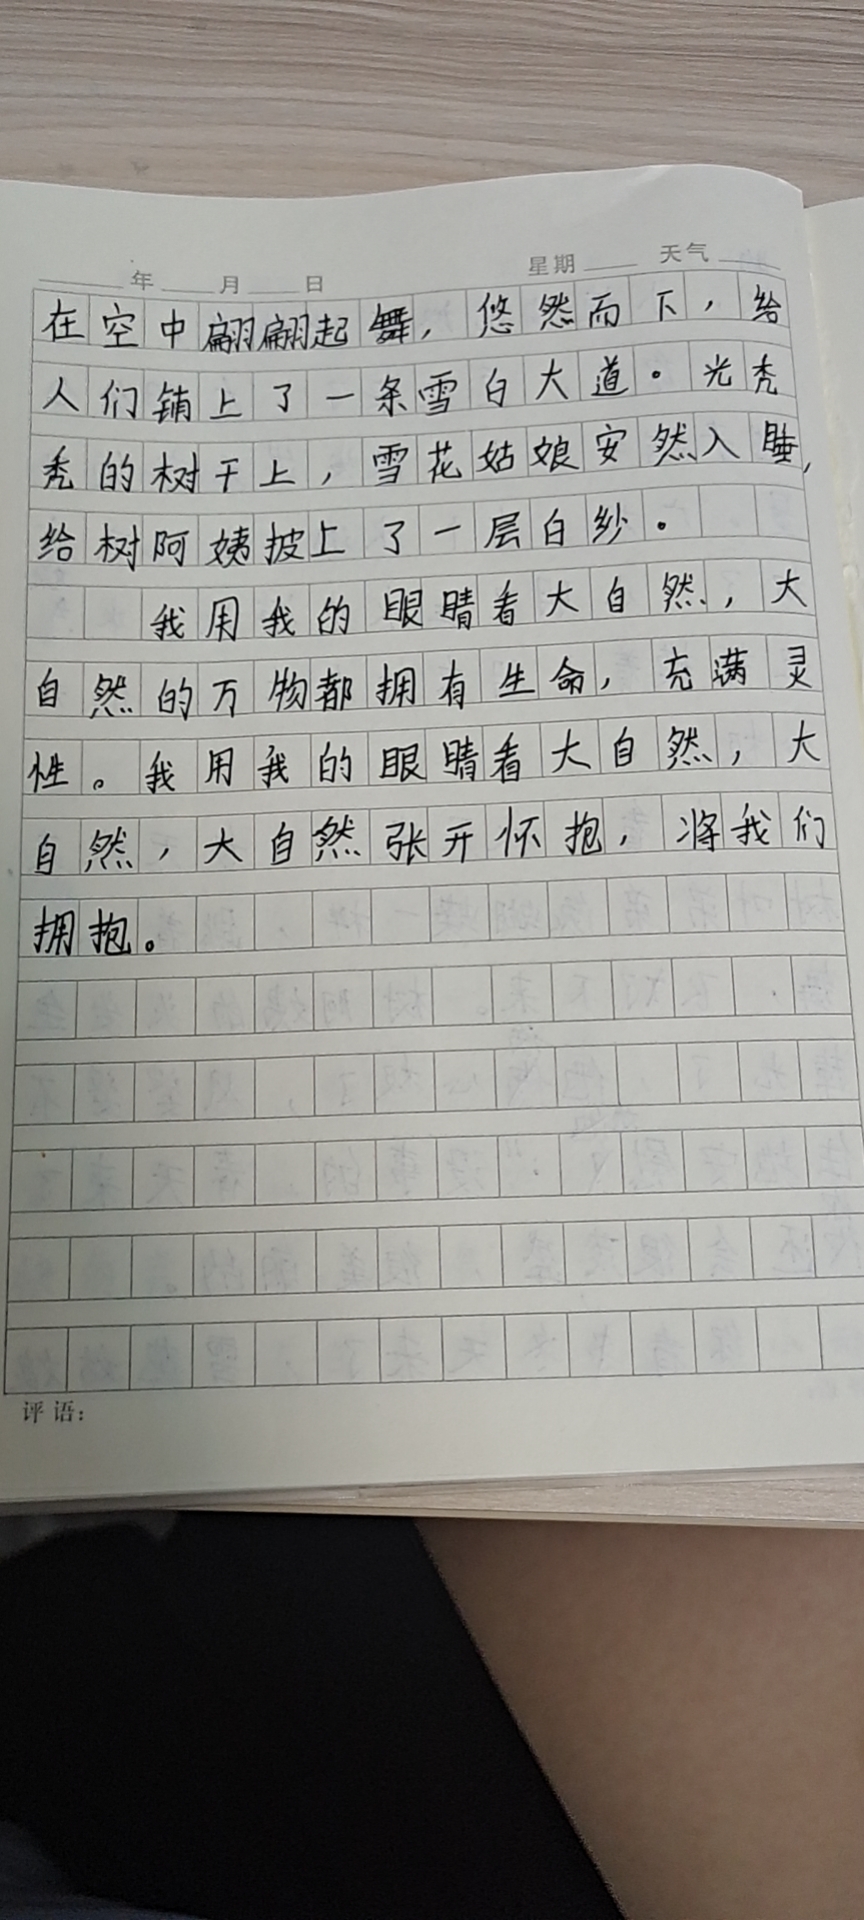 年 月 日 星期 天气
在空中翩翩起舞，悠然而下，给
人们铺上了一条雪白大道。光秃
秃的树干上，雪花姑娘安然入睡，
给树阿姨披上了一层白纱。
我用我的眼睛看大自然，大
自然的万物都拥有生命，充满灵
性。我用我的眼睛看大自然，大
自然，大自然张开怀抱，将我们
拥抱。
评语：